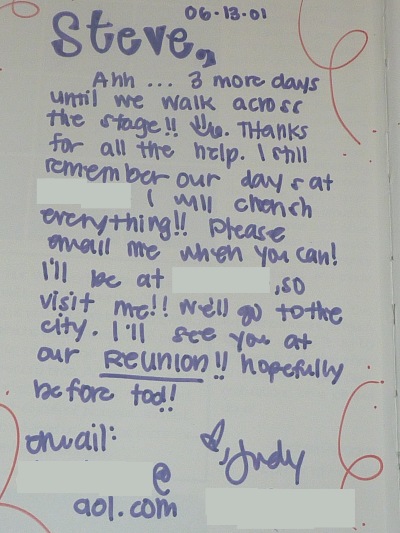 06-13-01
Steve,
Ahh ... 3 more days
until we walk across
the stage!! Thanks
for all the help. I still
remember our days at
I will cherish
everything!! Please
email me when you can!
I'll be at ,so
visit me!! We'll go to the
city. I'll see you at
our REUNION!! hopefully
before too!
email:
@
aol.com
Judy